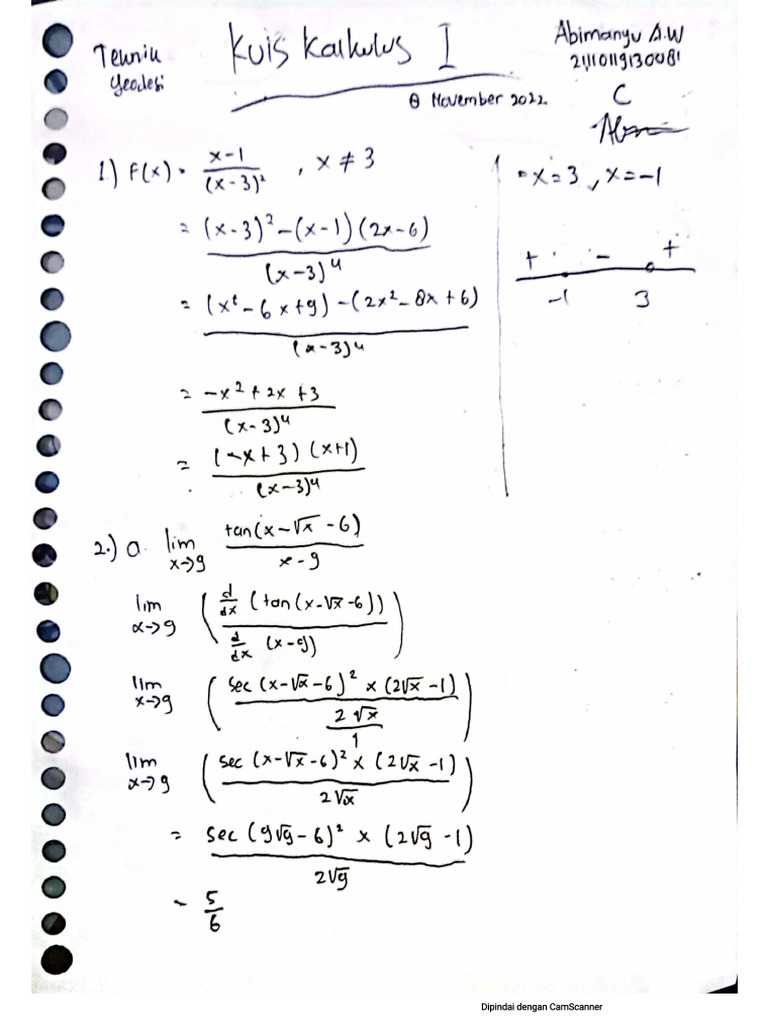 Teknik
Geodesi
Kuis Kalkulus I
8 November 2022
Abimanyu A.W
21110119130081
C
1.) F(x) = (x-1)/(x-3)² , x ≠ 3
= ((x-3)² - (x-1)(2x-6))/(x-3)⁴
= ((x² - 6x+9) - (2x² - 8x + 6))/(x-3)⁴
= (-x² + 2x + 3)/(x-3)⁴
= ((-x+3)(x+1))/(x-3)⁴
• x = 3 , x = -1
+ - +
-1 3
2.) a. lim x→9 tan(x-√x - 6)/(x-9)
lim x→9 ((d/dx (tan(x-√x-6)))/(d/dx (x-9)))
lim x→9 ((sec (x-√x-6)² × (2√x - 1))/(2√x/1))
lim x→9 ((sec (x-√x-6)² × (2√x - 1))/(2√x))
= (sec (9√9-6)² × (2√9 - 1))/(2√9)
= 5/6
Dipindai dengan CamScanner